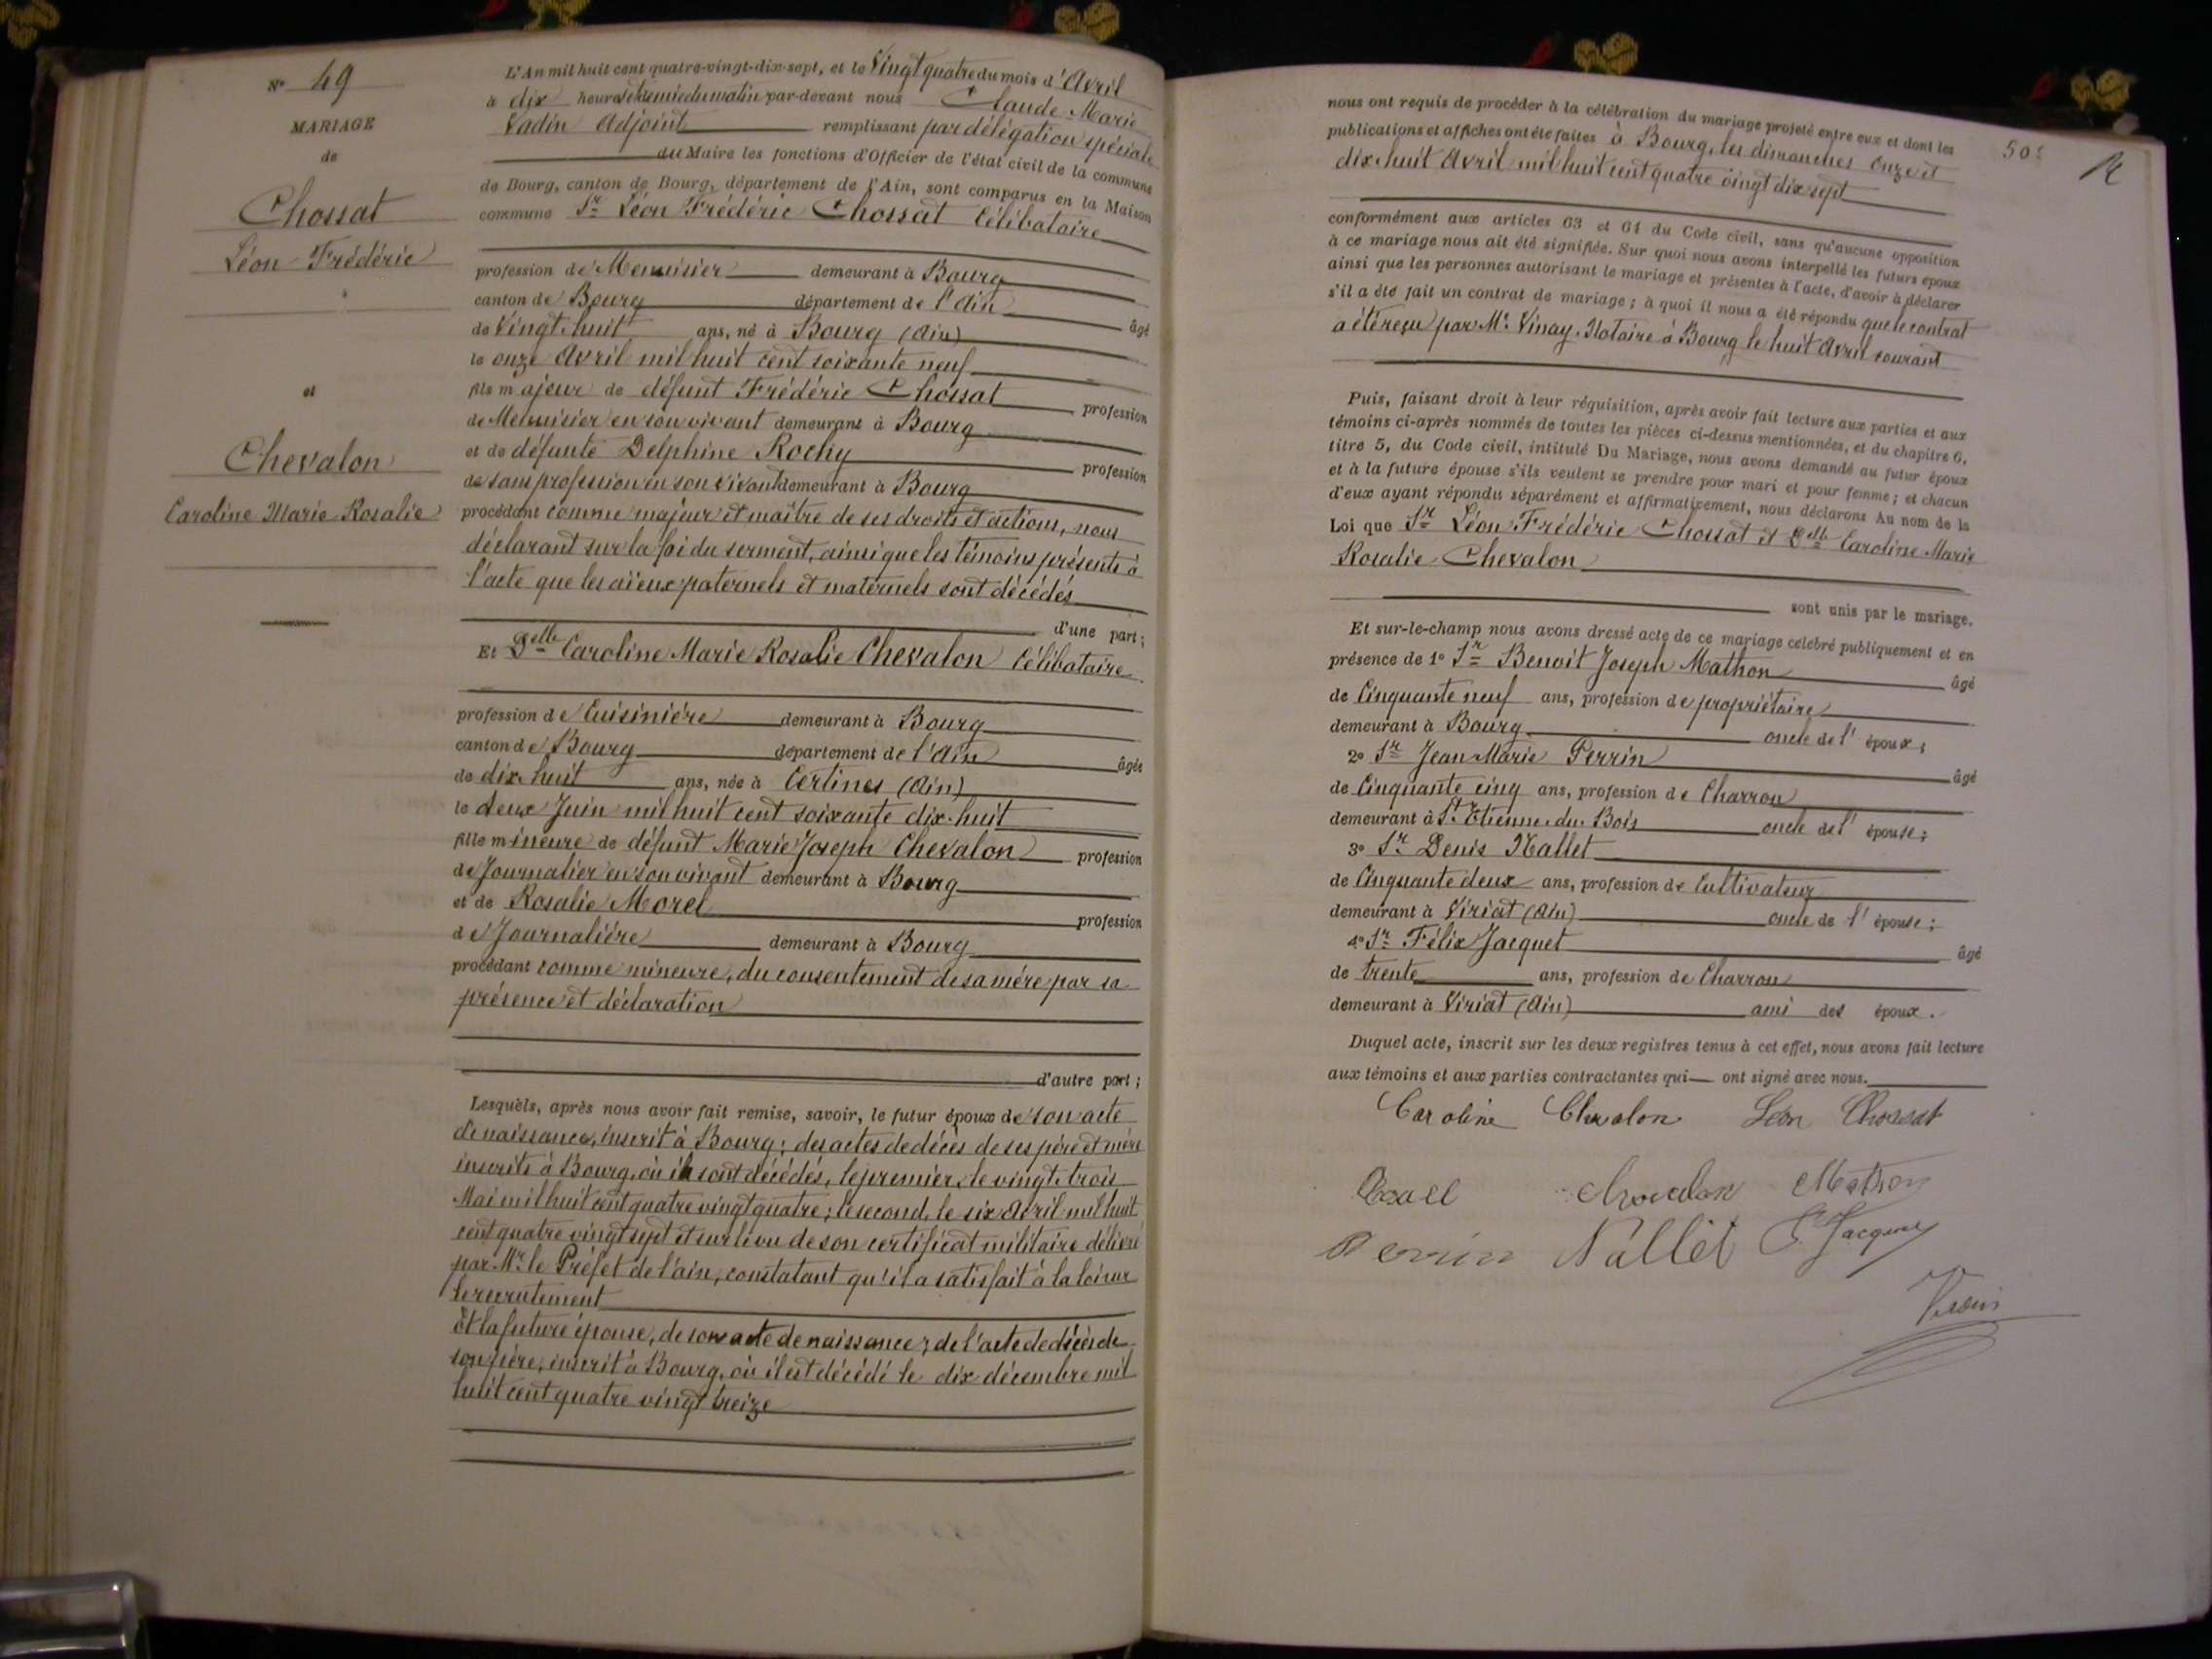 N° 49
MARIAGE
de
Chossat
Léon Frédéric
et
Chevalon
Caroline Marie Rosalie
L'An mil huit cent quatre-vingt-dix-sept, et le Vingt quatre du mois d'Avril
à dix heures et demie du matin par-devant nous Claude-Marie
Vadin Adjoint remplissant par délégation spéciale
du Maire les fonctions d'Officier de l'état civil de la commune
de Bourg, canton de Bourg, département de l'Ain, sont comparus en la Maison
commune Sr Léon Frédéric Chossat Célibataire
profession de Menuisier demeurant à Bourg
canton de Bourg département de l'Ain âgé
de Vingt-huit ans, né à Bourg (Ain)
le onze Avril mil huit cent soixante neuf
fils majeur de défunt Frédéric Chossat profession
de Menuisier en son vivant demeurant à Bourg
et de défunte Delphine Rochy profession
de sans profession en son vivant demeurant à Bourg
procédant comme majeur et maître de ses droits et actions, nous
déclarant sur la foi du serment, ainsi que les témoins présents à
l'acte que les aïeux paternels et maternels sont décédés
d'une part;
Et Delle Caroline Marie Rosalie Chevalon Célibataire
profession de Cuisinière demeurant à Bourg
canton de Bourg département de l'Ain âgée
de dix-huit ans, née à Certines (Ain)
le deux Juin mil huit cent soixante dix-huit
fille mineure de défunt Marie Joseph Chevalon profession
de Journalier en son vivant demeurant à Bourg
et de Rosalie Morel profession
de Journalière demeurant à Bourg
procédant comme mineure, du consentement de sa mère par sa
présence et déclaration
d'autre part;
Lesquels, après nous avoir fait remise, savoir, le futur époux de son acte
de naissance, inscrit à Bourg; des actes de décès de ses père et mère
inscrits à Bourg, où ils sont décédés, le premier, le vingt-trois
Mai mil huit cent quatre vingt quatre; le second, le six Avril mil huit
cent quatre vingt sept et sur le vu de son certificat militaire délivré
par Mr le Préfet de l'ain, constatant qu'il a satisfait à la loi sur
le recrutement
Et la future épouse, de son acte de naissance; de l'acte de décès de
son père, inscrit à Bourg, où il est décédé le dix décembre mil
huit cent quatre vingt treize
50e
nous ont requis de procéder à la célébration du mariage projeté entre eux et dont les
publications et affiches ont été faites à Bourg, les dimanches Onze et
dix-huit Avril mil huit cent quatre vingt dix sept
conformément aux articles 63 et 64 du Code civil, sans qu'aucune opposition
à ce mariage nous ait été signifiée. Sur quoi nous avons interpellé les futurs époux
ainsi que les personnes autorisant le mariage et présentes à l'acte, d'avoir à déclarer
s'il a été fait un contrat de mariage; à quoi il nous a été répondu que le contrat
a été reçu par Me Vinay, Notaire à Bourg le huit Avril courant
Puis, faisant droit à leur réquisition, après avoir fait lecture aux parties et aux
témoins ci-après nommés de toutes les pièces ci-dessus mentionnées, et du chapitre 6,
titre 5, du Code civil, intitulé Du Mariage, nous avons demandé au futur époux
et à la future épouse s'ils veulent se prendre pour mari et pour femme; et chacun
d'eux ayant répondu séparément et affirmativement, nous déclarons Au nom de la
Loi que Sr Léon Frédéric Chossat et Delle Caroline Marie
Rosalie Chevalon
sont unis par le mariage.
Et sur-le-champ nous avons dressé acte de ce mariage célébré publiquement et en
présence de 1° Sr Benoit Joseph Mathon âgé
de Cinquante neuf ans, profession de propriétaire
demeurant à Bourg oncle de l'époux;
2° Sr Jean Marie Perrin âgé
de Cinquante cinq ans, profession de Charron
demeurant à St Etienne du Bois oncle de l'épouse;
3° Sr Denis Nallet
de Cinquante deux ans, profession de Cultivateur
demeurant à Viriat (Ain) oncle de l'épouse;
4° Sr Félix Jacquet âgé
de trente ans, profession de Charron
demeurant à Viriat (Ain) ami des époux.
Duquel acte, inscrit sur les deux registres tenus à cet effet, nous avons fait lecture
aux témoins et aux parties contractantes qui ont signé avec nous.
Caroline Chevalon Léon Chossat
Chevalon Mathon
Perrin Nallet F. Jacquet